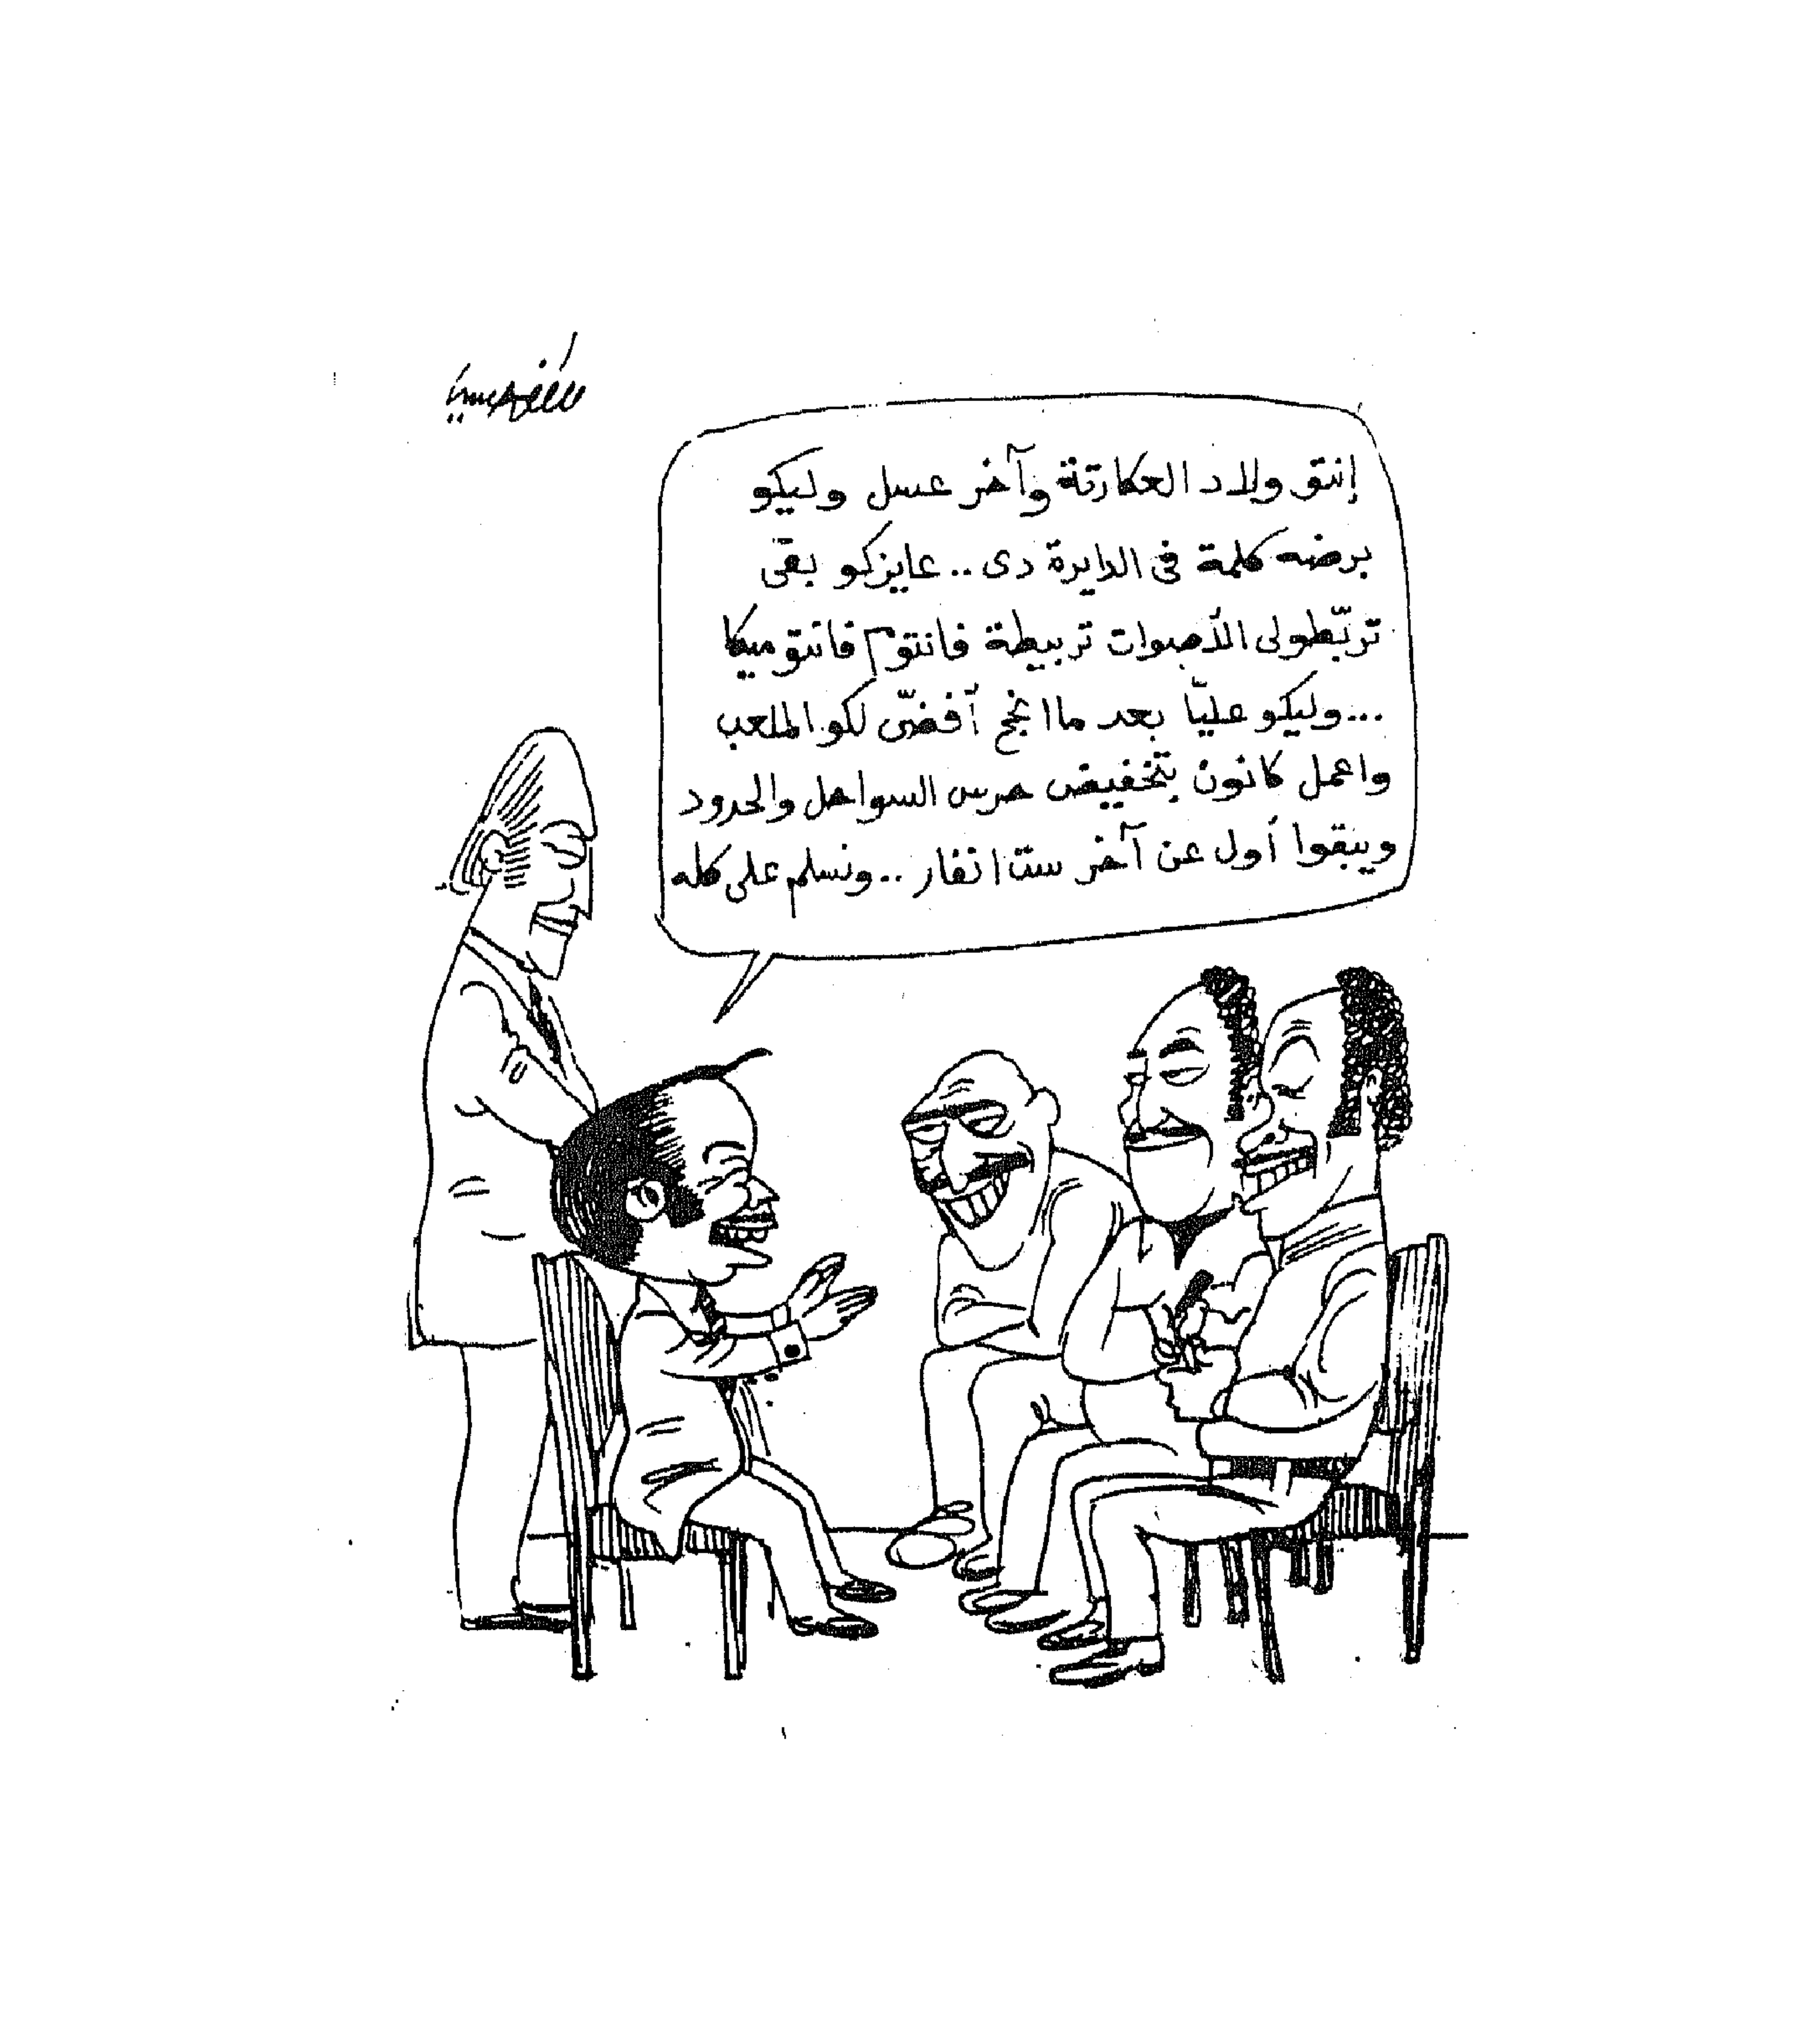 إنتو ولاد العكارتة وآخر عسل وليكو
برضه كلمة فى الدايرة دى .. عايزكو بقى
تربّطولى الأصوات تربيطة فانتوم فانتوميكا
... وليكو عليّا بعد ما انجح أفضّى لكو الملعب
واعمل كانون بتخفيض حرس السواحل والحدود
ويبقوا أول عن آخر ست انفار .. ونسلم على كله